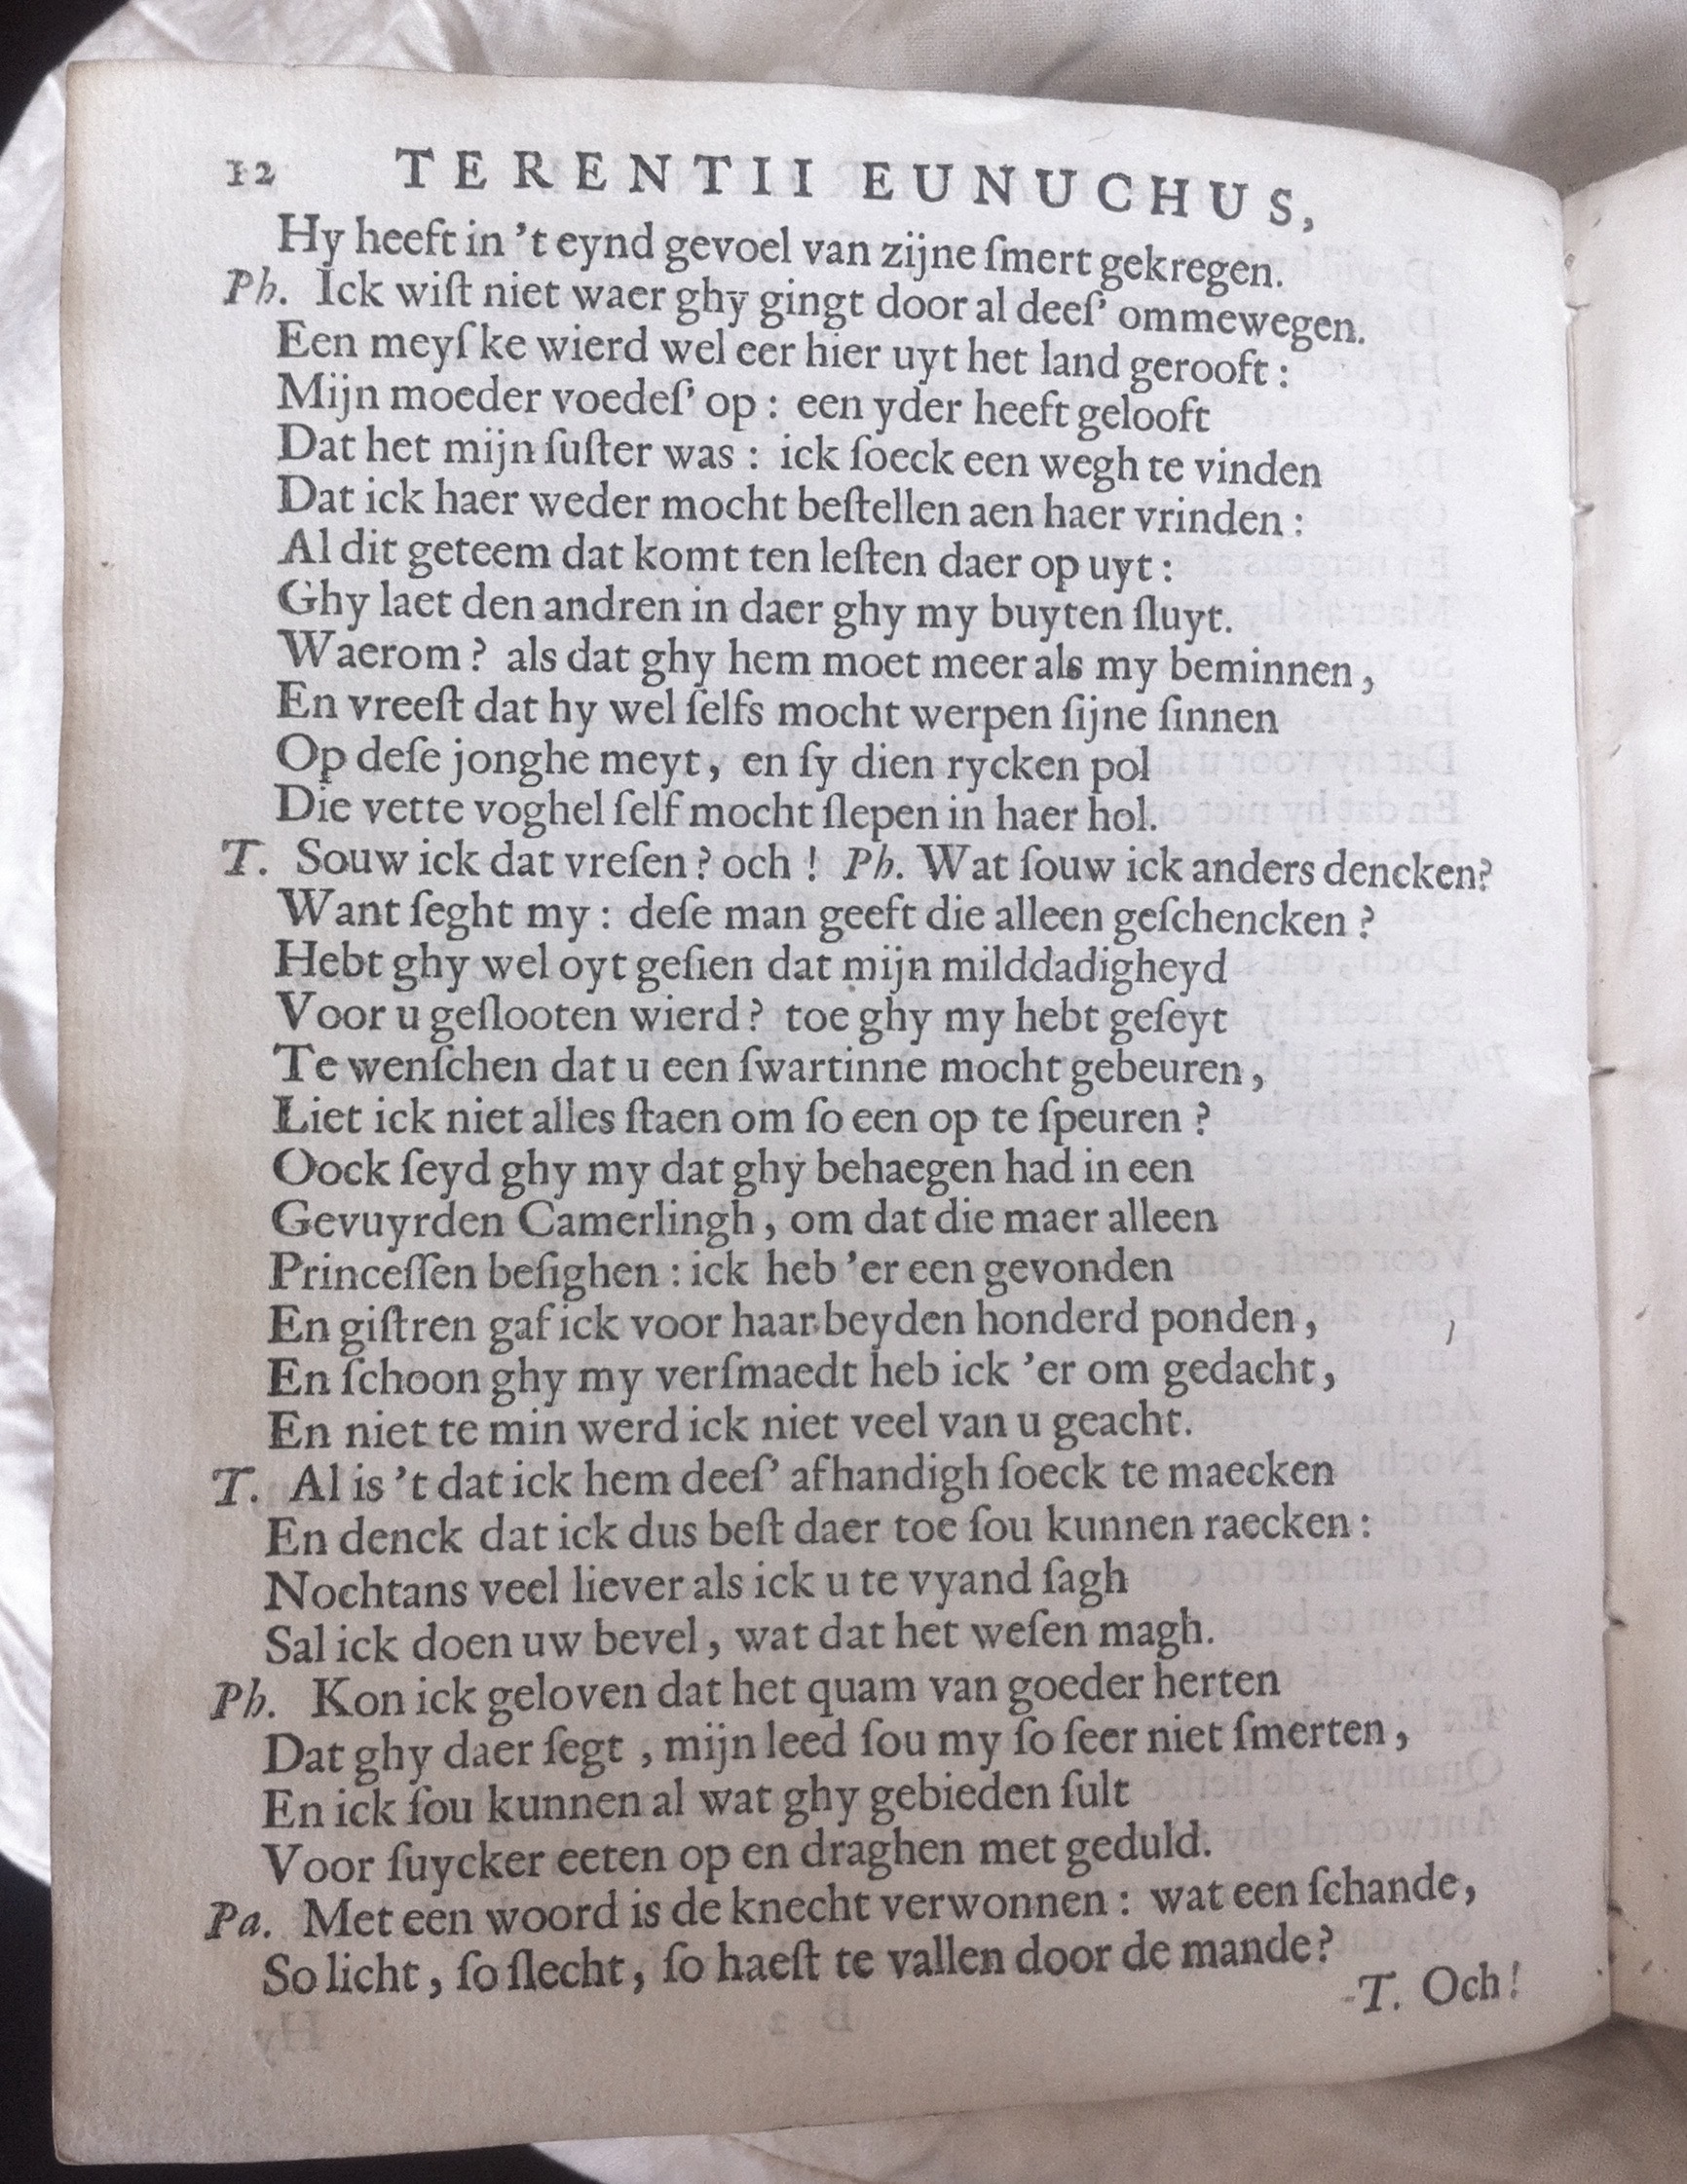 12 TERENTII EUNUCHUS,
Hy heeft in 't eynd gevoel van zijne ſmert gekregen.
Ph. Ick wiſt niet waer ghy gingt door al deeſ' ommewegen.
Een meyſke wierd wel eer hier uyt het land gerooft :
Mijn moeder voedeſ' op : een yder heeft gelooft
Dat het mijn ſuſter was : ick ſoeck een wegh te vinden
Dat ick haer weder mocht beſtellen aen haer vrinden :
Al dit geteem dat komt ten leſten daer op uyt :
Ghy laet den andren in daer ghy my buyten ſluyt.
Waerom ? als dat ghy hem moet meer als my beminnen ,
En vreeſt dat hy wel ſelfs mocht werpen ſijne ſinnen
Op deſe jonghe meyt , en ſy dien rycken pol
Die vette voghel ſelf mocht ſlepen in haer hol.
T. Souw ick dat vreſen ? och ! Ph. Wat ſouw ick anders dencken?
Want ſeght my : deſe man geeft die alleen geſchencken ?
Hebt ghy wel oyt geſien dat mijn milddadigheyd
Voor u geſlooten wierd ? toe ghy my hebt geſeyt
Te wenſchen dat u een ſwartinne mocht gebeuren ,
Liet ick niet alles ſtaen om ſo een op te ſpeuren ?
Oock ſeyd ghy my dat ghy behaegen had in een
Gevuyrden Camerlingh , om dat die maer alleen
Princeſſen beſighen : ick heb 'er een gevonden
En giſtren gaf ick voor haar beyden honderd ponden ,
En ſchoon ghy my verſmaedt heb ick 'er om gedacht ,
En niet te min werd ick niet veel van u geacht.
T. Al is 't dat ick hem deeſ' afhandigh ſoeck te maecken
En denck dat ick dus beſt daer toe ſou kunnen raecken :
Nochtans veel liever als ick u te vyand ſagh
Sal ick doen uw bevel , wat dat het weſen magh.
Ph. Kon ick geloven dat het quam van goeder herten
Dat ghy daer ſegt , mijn leed ſou my ſo ſeer niet ſmerten ,
En ick ſou kunnen al wat ghy gebieden ſult
Voor ſuycker eeten op en draghen met geduld.
Pa. Met een woord is de knecht verwonnen : wat een ſchande ,
So licht , ſo ſlecht , ſo haeſt te vallen door de mande ?
T. Och !